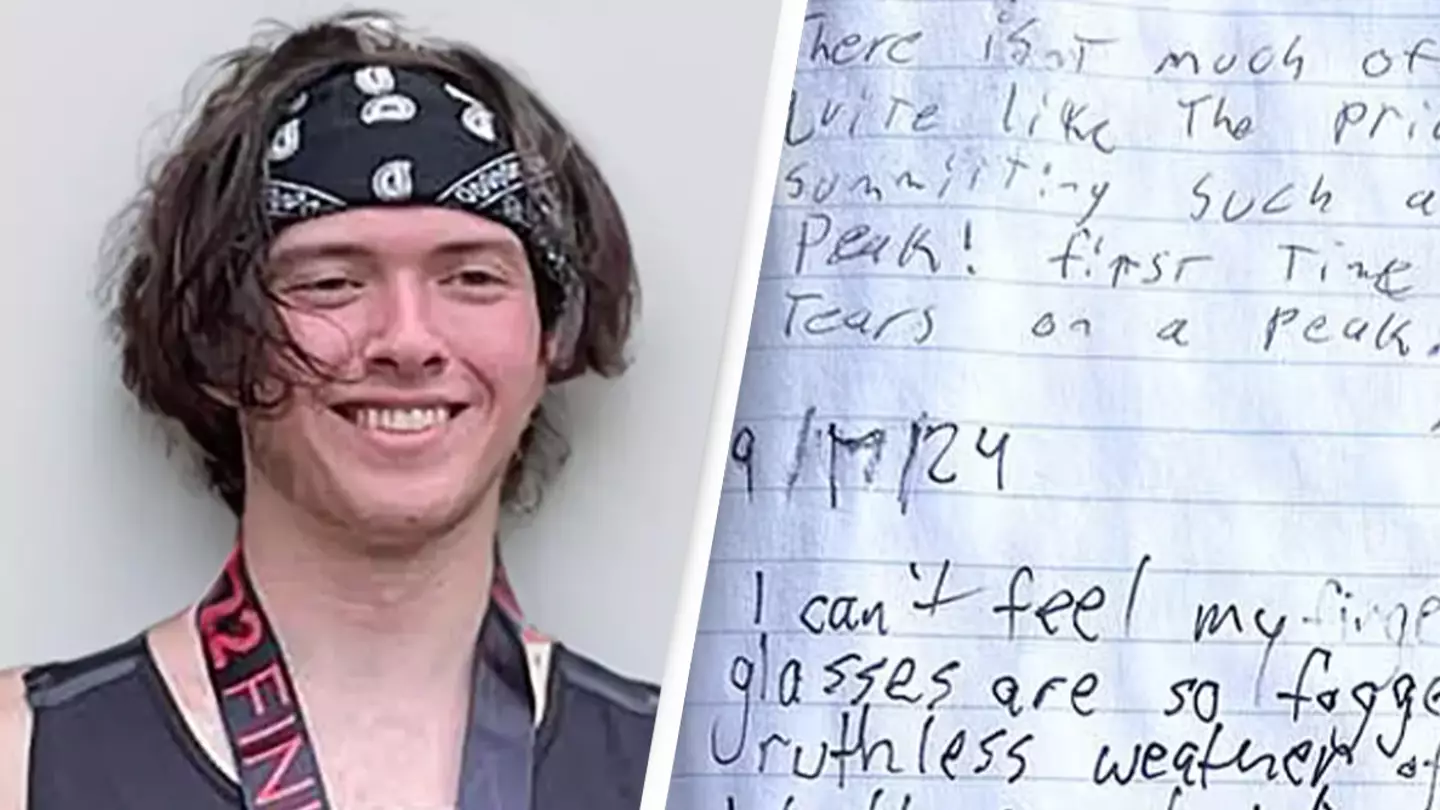 There isn't much of
Quite like The
summiting such a
Peak! first Time
Tears on a peak.
9/17/24
I can't feel my
glasses are so
ruthless weather
FINI